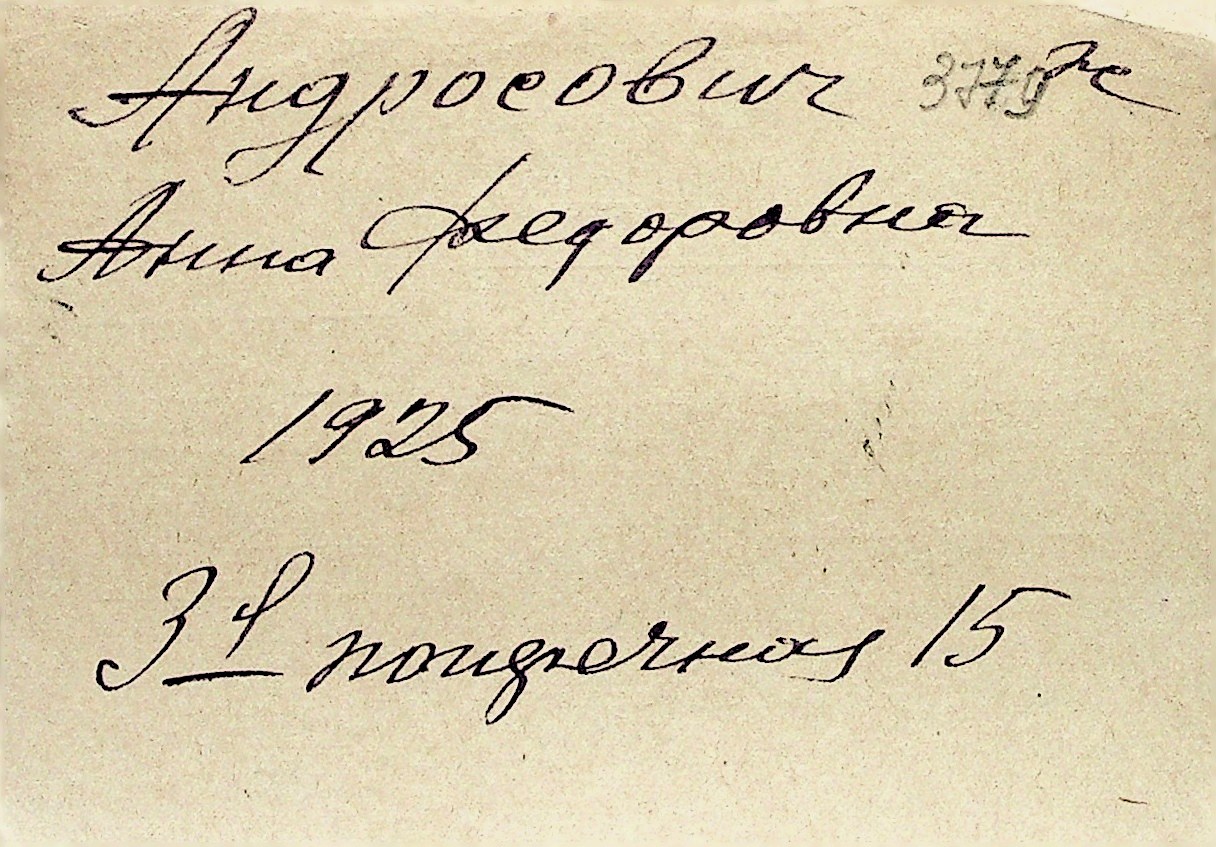 Андросович
Анна Федоровна
1925
3я поперечная 15